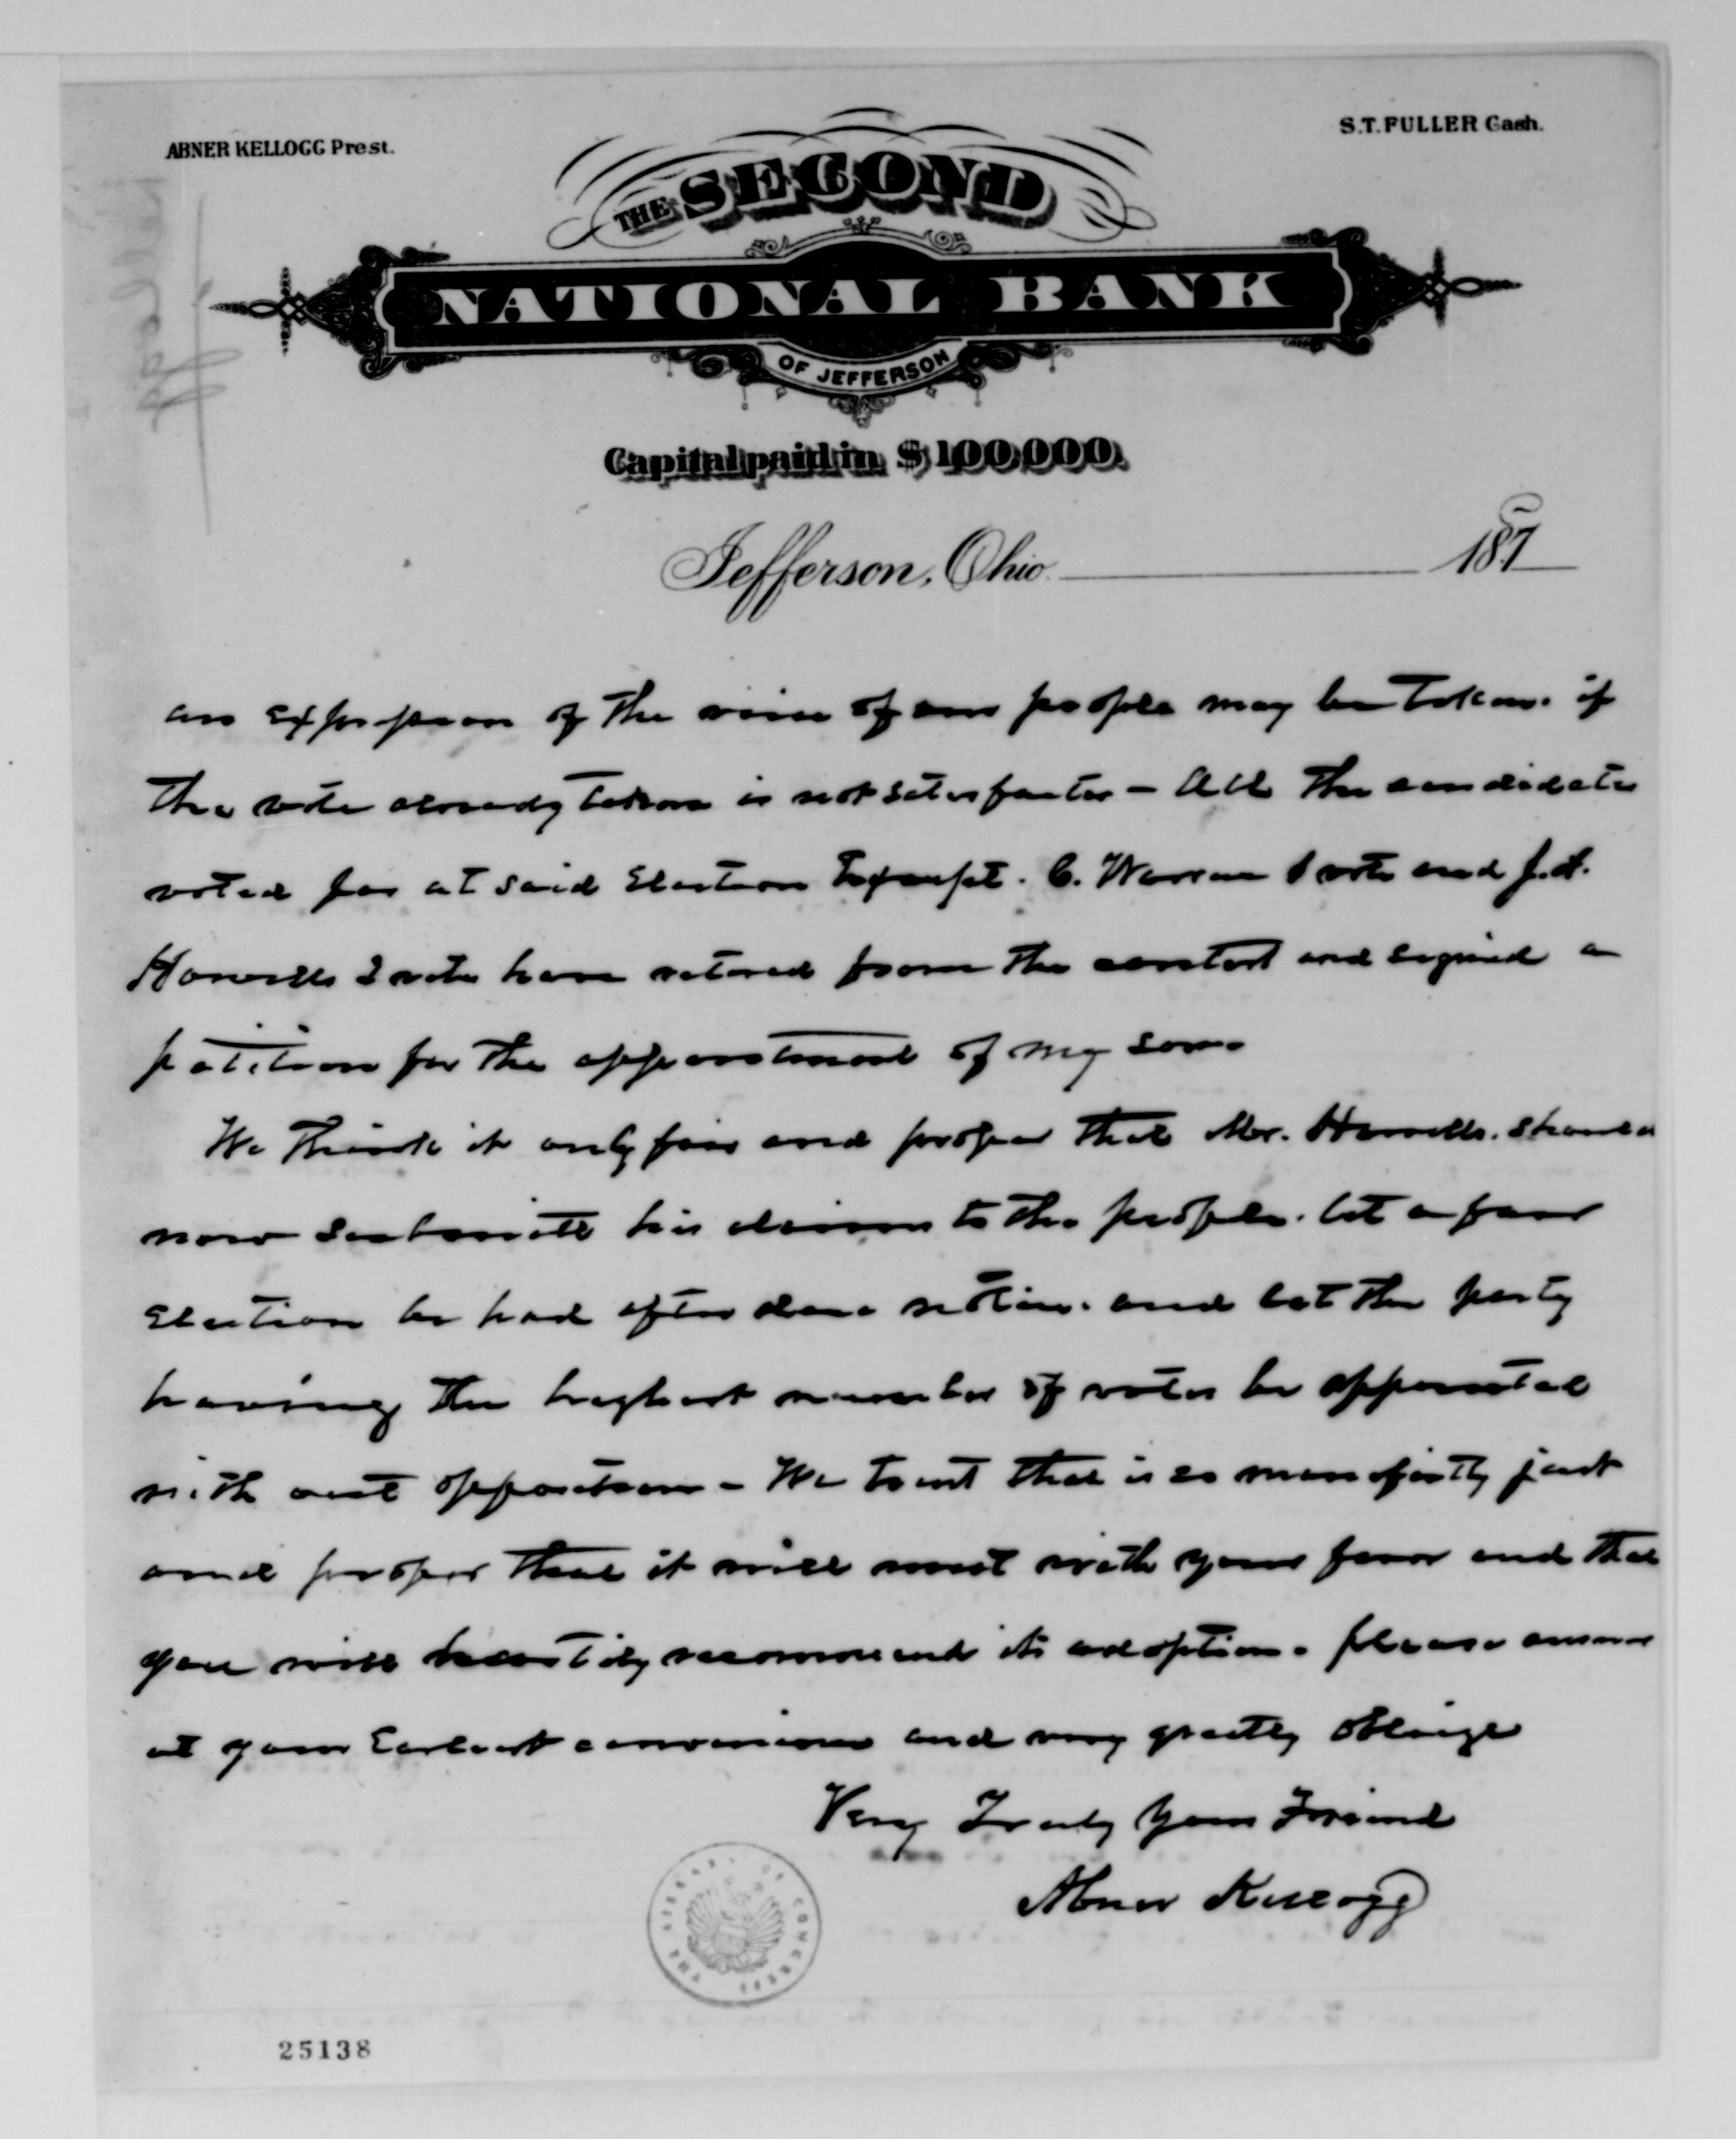 ABNER KELLOGG Prest.
S.T. FULLER Cash.
THE SECOND
NATIONAL BANK
OF JEFFERSON
Capital paid in $100,000.
Jefferson, Ohio 187
an expression of the voice of our people may be taken. if
the vote already taken is not satisfactor - All the candidates
voted for at said Election Except. C. Warren 1 vote and J.A.
Howells 2 vote have retired from the contest and signed a
petition for the appointment of my son.
We think it only fair and proper that Mr. Howells. should
now submitt his claims to the people. let a fair
Election be had after due notice. and let the party
having the highest number of votes be appointed
with out opposition - We trust that is so manifestly just
and proper that it will meet with your favor and that
you will heartily recommend its adoption. please answer
at your Earliest convenience and very greatly oblige
Very Truly Your Friend
Abner Kellogg
THE LIBRARY OF CONGRESS
25138